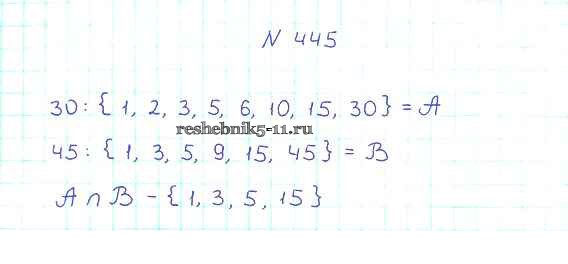 N 445
30: { 1, 2, 3, 5, 6, 10, 15, 30 } = A
reshebnik5-11.ru
45: { 1, 3, 5, 9, 15, 45 } = B
A ∩ B - { 1, 3, 5, 15 }